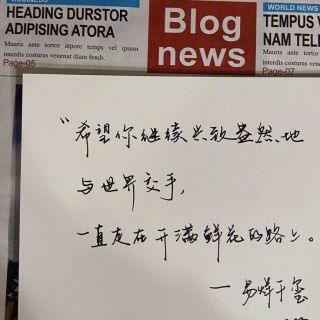 BUSINESS
HEADING DURSTOR
ADIPISING ATORA
Mauris ante tortor atpore temps vel ipsum
interdis costuras venenat diam fends.
Page-05
Blog
news
WORLD NEWS
TEMPUS V
NAM TELL
Mauris ante tortor
interdis costuras ven
Page-07
“希望你继续兴致盎然地
与世界交手，
一直走在开满鲜花的路上。
一易烊千玺